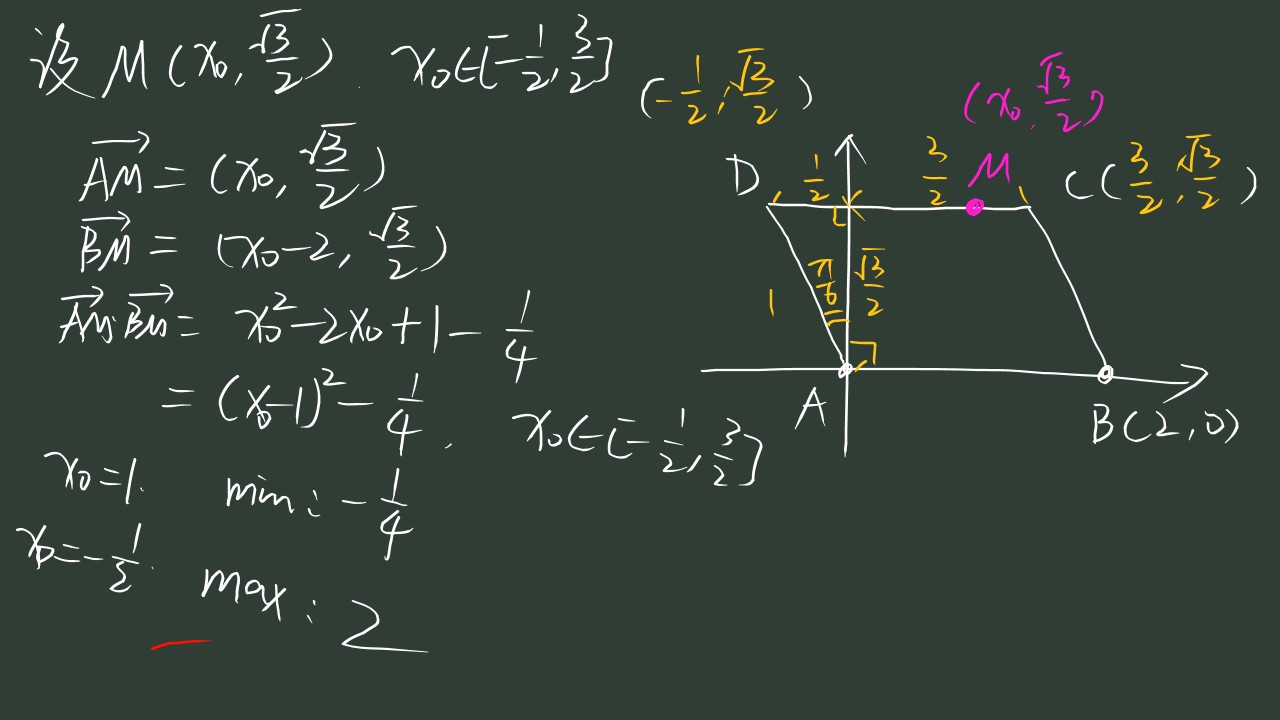 设 M(x₀, √3/2) . x₀∈[-1/2, 3/2]
AM = (x₀, √3/2)
BM = (x₀-2, √3/2)
AM·BM = x₀²-2x₀+1-1/4
= (x₀-1)²-1/4 , x₀∈[-1/2, 3/2]
x₀=1. min: -1/4
x₀=-1/2. max: 2
(-1/2, √3/2)
(x₀, √3/2)
D 1/2 3/2 M C(3/2, √3/2)
1 π/6 √3/2
A B(2,0)